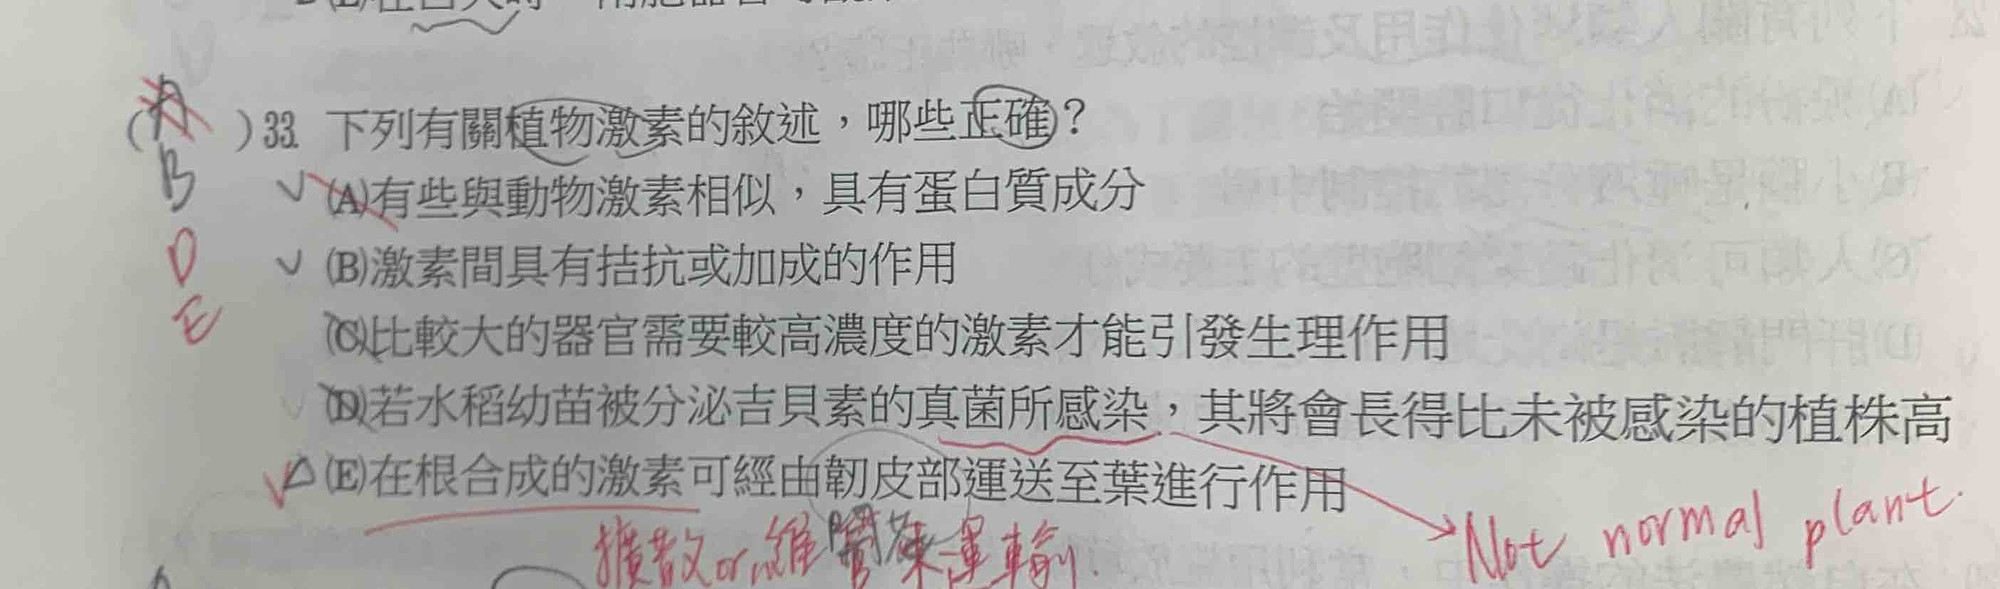 ( A ) 33. 下列有關植物激素的敘述，哪些正確？
B
D
E
(A)有些與動物激素相似，具有蛋白質成分
(B)激素間具有拮抗或加成的作用
(C)比較大的器官需要較高濃度的激素才能引發生理作用
(D)若水稻幼苗被分泌吉貝素的真菌所感染，其將會長得比未被感染的植株高
(E)在根合成的激素可經由韌皮部運送至葉進行作用
擴散or維管束運輸
Not normal plant.